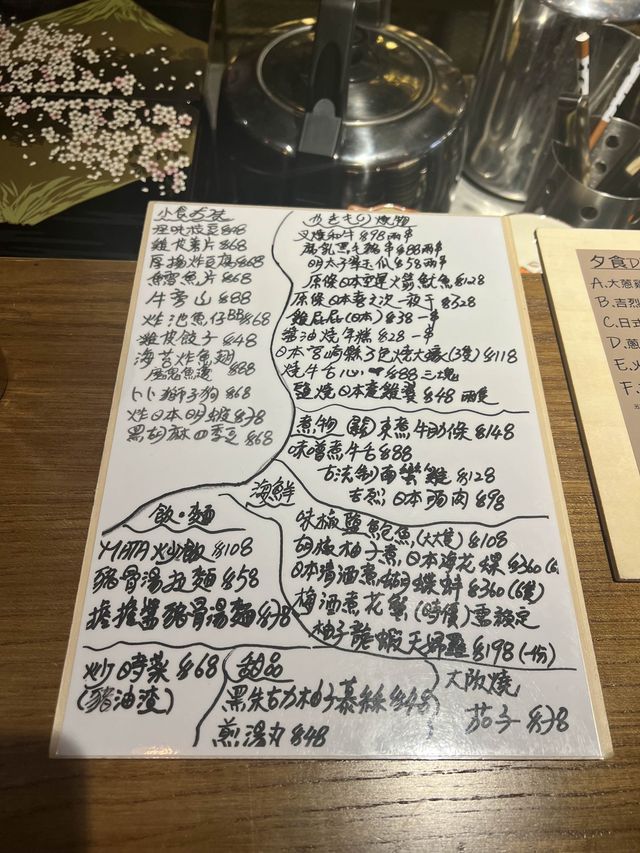 小食
枝豆 $48
雞皮薯片 $68
厚揚炸豆腐 $68
鱈魚片 $68
牛蒡山 $88
炸池魚仔BB $68
雞皮餃子 $48
海苔炸魚翅
魔鬼魚邊 $88
卜卜獅子狗 $68
炸日本明蝦 $78
黑胡麻四季豆 $68
燒物
叉燒和牛 $98 兩串
腐乳黑毛豬串 $88 兩串
明太子翠玉瓜 $58 兩串
原條日本空運火箭魷魚 $128
原條日本喜之次一夜干 $328
雞屁屁(日本) $38 一串
醬油燒年糕 $28 一串
日本宮崎縣3色燒大腸(3隻) $118
燒牛舌心 $88 三塊
鹽燒日本產雞翼 $48 兩隻
煮物 關東煮牛肋條 $148
味噌煮牛舌 $88
古法制南蠻雞 $128
吉烈日本豚肉 $98
海鮮
味椒鹽鮑魚(大大隻) $108
胡椒柚子煮日本海花螺 $360
日本清酒煮蝴蝶蚌 $360 (6隻)
梅酒煮花蟹(時價)需預定
柚子龍蝦天婦羅 $198 (一份)
飯·麵
MATA炒飯 $108
豬骨湯拉麵 $58
擔擔醬豬骨湯麵 $78
炒時菜 $68
(豬油渣)
甜品
黑朱古力柚子慕絲 $48
煎湯丸 $48
大阪燒
茄子 $78
夕食
A.大蔥
B.吉烈
C.日式
D.蔥
E.
F.